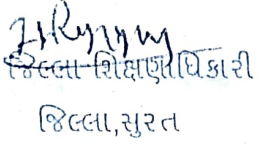 જિલ્લા શિક્ષણાધિકારી
જિલ્લા,સુરત